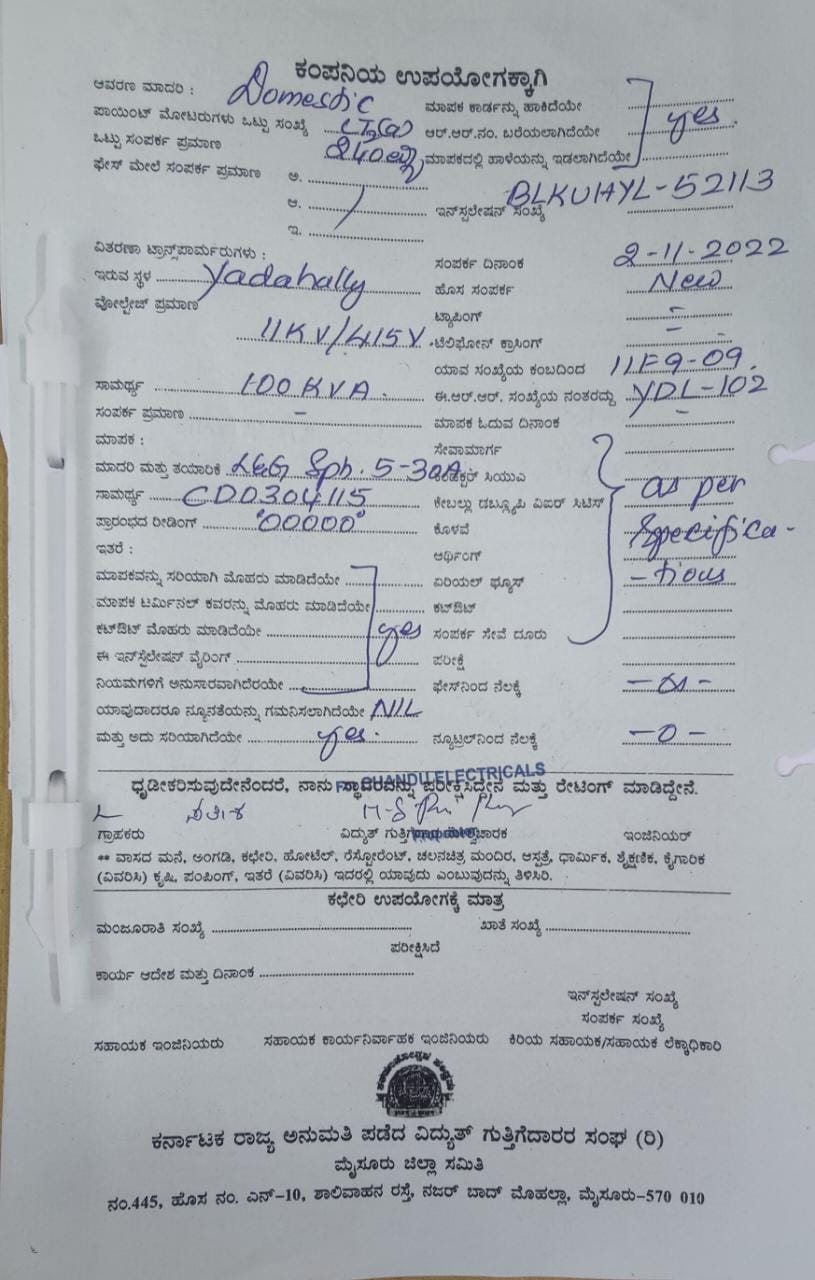 ಕಂಪನಿಯ ಉಪಯೋಗಕ್ಕಾಗಿ
ಆವರಣ ಮಾದರಿ : Domestic ಮಾಪಕ ಕಾರ್ಡನ್ನು ಹಾಕಿದೆಯೇ
ಪಾಯಿಂಟ್ ಮೋಟರುಗಳು ಒಟ್ಟು ಸಂಖ್ಯೆ ಆರ್.ಆರ್.ನಂ. ಬರೆಯಲಾಗಿದೆಯೇ yes.
ಒಟ್ಟು ಸಂಪರ್ಕ ಪ್ರಮಾಣ ಮಾಪಕದಲ್ಲಿ ಹಾಳೆಯನ್ನು ಇಡಲಾಗಿದೆಯೇ
ಫೇಸ್ ಮೇಲೆ ಸಂಪರ್ಕ ಪ್ರಮಾಣ ಅ.
ಆ. ಇನ್‌ಸ್ಟಲೇಷನ್ ಸಂಖ್ಯೆ BLKUHYL-52113
ಇ.
ವಿತರಣಾ ಟ್ರಾನ್ಸ್‌ಪಾರ್ಮರುಗಳು : ಸಂಪರ್ಕ ದಿನಾಂಕ 2-11-2022
ಇರುವ ಸ್ಥಳ Yadahally ಹೊಸ ಸಂಪರ್ಕ New
ವೋಲ್ಟೇಜ್ ಪ್ರಮಾಣ ಟ್ಯಾಪಿಂಗ್ -
11KV/415V ಟೆಲಿಫೋನ್ ಕ್ರಾಸಿಂಗ್ -
ಯಾವ ಸಂಖ್ಯೆಯ ಕಂಬದಿಂದ 11F9-09.
ಸಾಮರ್ಥ್ಯ 100 KVA. ಈ.ಆರ್.ಆರ್. ಸಂಖ್ಯೆಯ ನಂತರದ್ದು YDL-102
ಸಂಪರ್ಕ ಪ್ರಮಾಣ - ಮಾಪಕ ಓದುವ ದಿನಾಂಕ -
ಮಾಪಕ : ಸೇವಾಮಾರ್ಗ
ಮಾದರಿ ಮತ್ತು ತಯಾರಿಕೆ L&G Sph. 5-30A ಕಂಡಕ್ಟರ್ ಸಿಯುವಿ as per
ಸಾಮರ್ಥ್ಯ CD0304115 ಕೇಬಲ್ಲು ಡಬ್ಲ್ಯೂಪಿ ವಿಐರ್ ಸಿಟಿಸ್
ಪ್ರಾರಂಭದ ರೀಡಿಂಗ್ "00000" ಕೊಳವೆ Specifica-
ಇತರೆ : ಆರ್ಥಿಂಗ್
ಮಾಪಕವನ್ನು ಸರಿಯಾಗಿ ಮೊಹರು ಮಾಡಿದೆಯೇ ಏರಿಯಲ್ ಫ್ಯೂಸ್ -tions
ಮಾಪಕ ಟರ್ಮಿನಲ್ ಕವರನ್ನು ಮೊಹರು ಮಾಡಿದೆಯೇ ಕಟ್‌ಔಟ್
ಕಟ್‌ಔಟ್ ಮೊಹರು ಮಾಡಿದೆಯೇ yes ಸಂಪರ್ಕ ಸೇವೆ ದೂರು
ಈ ಇನ್‌ಸ್ಟಲೇಷನ್ ವೈರಿಂಗ್ ಪರೀಕ್ಷೆ
ನಿಯಮಗಳಿಗೆ ಅನುಸಾರವಾಗಿದೆರಯೇ ಫೇಸ್‌ನಿಂದ ನೆಲಕ್ಕೆ
ಯಾವುದಾದರೂ ನ್ಯೂನತೆಯನ್ನು ಗಮನಿಸಲಾಗಿದೆಯೇ NIL
ಮತ್ತು ಅದು ಸರಿಯಾಗಿದೆಯೇ yes. ನ್ಯೂಟ್ರಲ್‌ನಿಂದ ನೆಲಕ್ಕೆ -0-
CHANDU ELECTRICALS
ಧೃಡೀಕರಿಸುವುದೇನೆಂದರೆ, ನಾನು ಸ್ಥಾವರವನ್ನು ಪರೀಕ್ಷಿಸಿದ್ದೇನೆ ಮತ್ತು ರೇಟಿಂಗ್ ಮಾಡಿದ್ದೇನೆ.
ಗ್ರಾಹಕರು ವಿದ್ಯುತ್ ಇಂಜಿನಿಯರ್
** ವಾಸದ ಮನೆ, ಅಂಗಡಿ, ಕಛೇರಿ, ಹೋಟೆಲ್, ರೆಸ್ಟೋರೆಂಟ್, ಚಲನಚಿತ್ರ ಮಂದಿರ, ಆಸ್ಪತ್ರೆ, ಧಾರ್ಮಿಕ, ಶೈಕ್ಷಣಿಕ, ಕೈಗಾರಿಕೆ
(ವಿವರಿಸಿ) ಕೃಷಿ, ಪಂಪಿಂಗ್, ಇತರೆ (ವಿವರಿಸಿ) ಇದರಲ್ಲಿ ಯಾವುದು ಎಂಬುವುದನ್ನು ತಿಳಿಸಿರಿ.
ಕಛೇರಿ ಉಪಯೋಗಕ್ಕೆ ಮಾತ್ರ
ಮಂಜೂರಾತಿ ಸಂಖ್ಯೆ ಖಾತೆ ಸಂಖ್ಯೆ
ಪರೀಕ್ಷಿಸಿದೆ
ಕಾರ್ಯ ಆದೇಶ ಮತ್ತು ದಿನಾಂಕ
ಇನ್‌ಸ್ಟಲೇಷನ್ ಸಂಖ್ಯೆ
ಸಂಪರ್ಕ ಸಂಖ್ಯೆ
ಸಹಾಯಕ ಇಂಜಿನಿಯರು ಸಹಾಯಕ ಕಾರ್ಯನಿರ್ವಾಹಕ ಇಂಜಿನಿಯರು ಕಿರಿಯ ಸಹಾಯಕ/ಸಹಾಯಕ ಲೆಕ್ಕಾಧಿಕಾರಿ
ಕರ್ನಾಟಕ ರಾಜ್ಯ ಅನುಮತಿ ಪಡೆದ ವಿದ್ಯುತ್ ಗುತ್ತಿಗೆದಾರರ ಸಂಘ (ರಿ)
ಮೈಸೂರು ಜಿಲ್ಲಾ ಸಮಿತಿ
ನಂ.445, ಹೊಸ ನಂ. ಎನ್-10, ಶಾಲಿವಾಹನ ರಸ್ತೆ, ನಜರ್ ಬಾದ್ ಮೊಹಲ್ಲಾ, ಮೈಸೂರು-570 010